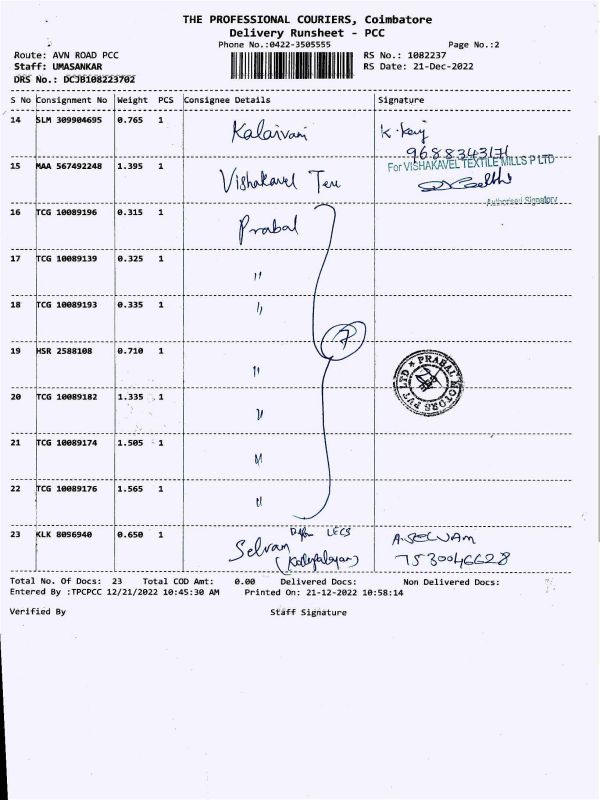 THE PROFESSIONAL COURIERS, Coimbatore
Delivery Runsheet - PCC
Phone No.:0422-3505555 Page No.:2
Route: AVN ROAD PCC RS No.: 1082237
Staff: UMASANKAR RS Date: 21-Dec-2022
DRS No.: DCJB108223702
S No Consignment No Weight PCS Consignee Details Signature
14 SLM 309904695 0.765 1 Kalaivani
9688343171
15 MAA 567492248 1.395 1 Vishakavel Tex For VISHAKAVEL TEXTILE MILLS P LTD
Authorised Signatory
16 TCG 10089196 0.315 1 Prabal
17 TCG 10089139 0.325 1 "
18 TCG 10089193 0.335 1 "
7
19 HSR 2588108 0.710 1 " PRABAL MOTORS PVT LTD
20 TCG 10089182 1.335 1 "
21 TCG 10089174 1.505 1 "
22 TCG 10089176 1.565 1 "
23 KLK 8096940 0.650 1 Selvam A.SELVAM
7530046628
Total No. Of Docs: 23 Total COD Amt: 0.00 Delivered Docs: Non Delivered Docs:
Entered By :TPCPCC 12/21/2022 10:45:30 AM Printed On: 21-12-2022 10:58:14
Verified By Staff Signature